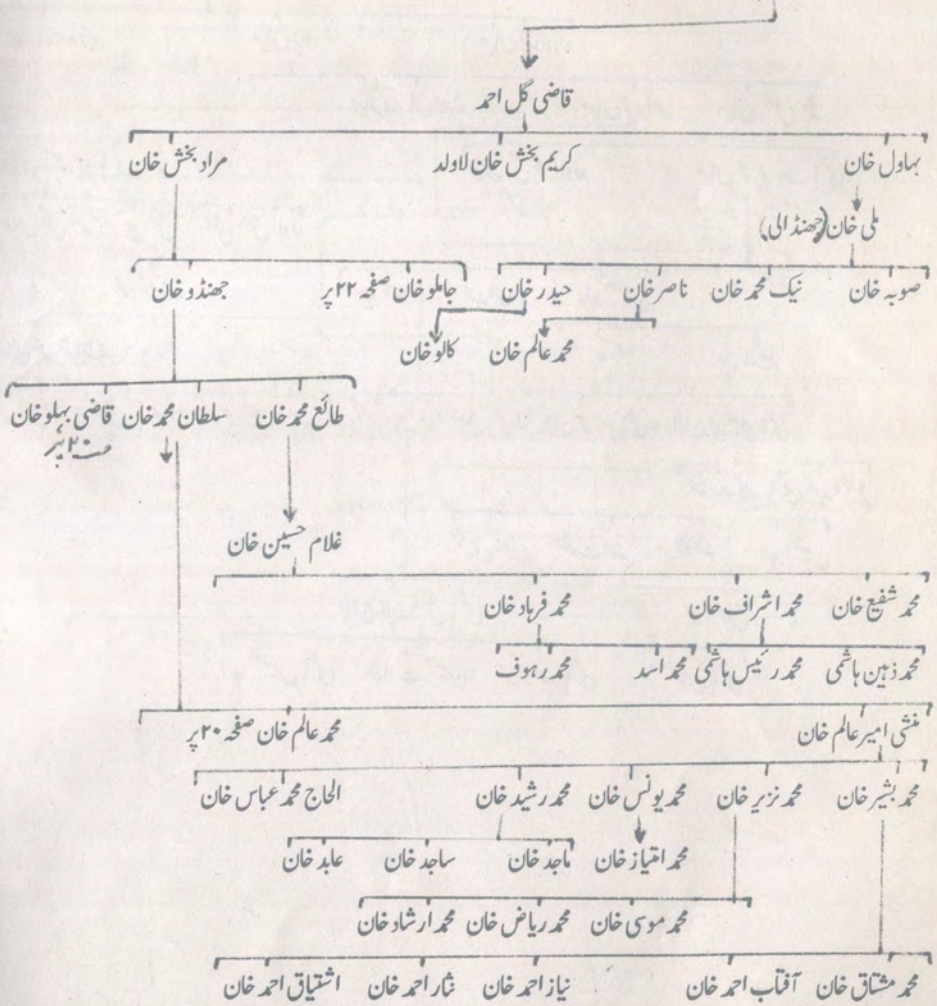 قاضی گل احمد
بہاول خان کریم بخش خان لاولد مراد بخش خان
ملی خان (جھنڈالی)
صوبہ خان نیک محمد خان ناصر خان حیدر خان جاملو خان صفحہ ۲۲ پر جھنڈو خان
محمد عالم خان کالو خان
طائع محمد خان سلطان محمد خان قاضی بہلو خان
پر
غلام حسین خان
محمد شفیع خان محمد اشراف خان محمد فرہاد خان
محمد ذہین ہاشمی محمد رئیس ہاشمی محمد اسد محمد رہوف
منشی امیر عالم خان محمد عالم خان صفحہ ۲۰ پر
محمد بشیر خان محمد نزیر خان محمد یونس خان محمد رشید خان الحاج محمد عباس خان
محمد امتیاز خان ماجد خان ساجد خان عابد خان
محمد موسی خان محمد ریاض خان محمد ارشاد خان
محمد مشتاق خان آفتاب احمد خان نیاز احمد خان نثار احمد خان اشتیاق احمد خان